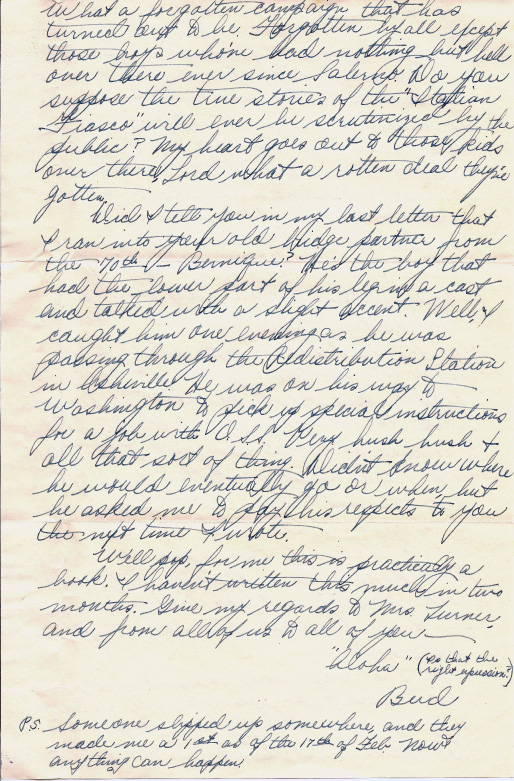 what a forgotten campaign that has
turned out to be. Forgotten by all except
those boys who've had nothing but hell
over there ever since Salerno. Do you
suppose the true stories of the "Italian
Fiasco" will ever be scrutinized by the
public? My heart goes out to those kids
over there, Lord what a rotten deal they've
gotten.
Did I tell you in my last letter that
I ran into your old bridge partner from
the 70th - Bernique? He's the boy that
had the lower part of his leg in a cast
and talked with a slight accent. Well, I
caught him one evening as he was
passing through the Redistribution Station
in Asheville. He was on his way to
Washington to pick up special instructions
for a job with O.S.S. Very hush hush &
all that sort of thing. Didn't know where
he would eventually go or when but
he asked me to pay his respects to you
the next time I wrote.
Well pop, for me this is practically a
book. I haven't written this much in two
months. Give my regards to Mrs. Turner,
and from all of us to all of you —
"Aloha" (Is that the
right expression?)
Bud
P.S. Someone slipped up somewhere, and they
made me a 1st as of the 17th of Feb. Now
anything can happen!